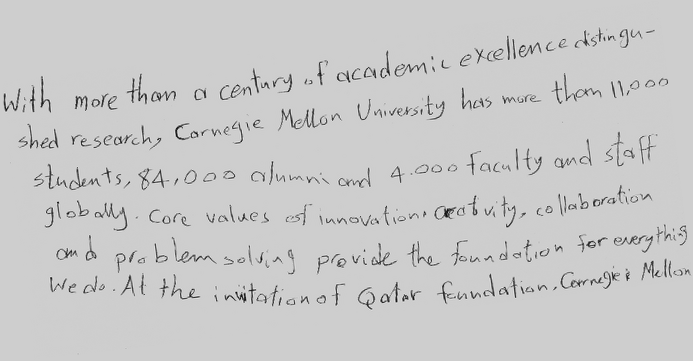 With more than a century of academic excellence distingu-
shed research, Carnegie Mellon University has more than 11,000
students, 84,000 alumni and 4.000 faculty and staff
globally. Core values of innovation, creativity, collaboration
and problem solving provide the foundation for everything
We do. At the invitation of Qatar foundation, Carnegie Mellon